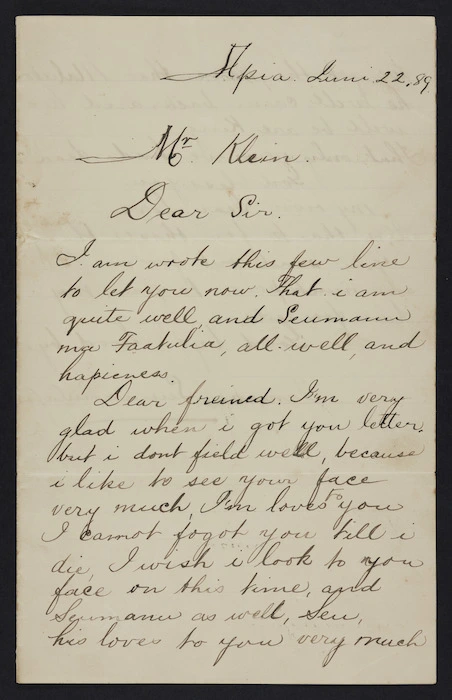 Apia. Juni 22. 89
Mr Klein.
Dear Sir.
I. am wrote this few line
to let you now. That i am
quite well, and Seumanu
ma Faatulia, all. well, and
hapieness.
Dear freined. I'm very
glad when i got you letter.
but i dont field well, because
i like to see your face
very much, I'm loves to you
I cannot fogot you till i
die, I wish i look to you
face on this time, and
Seumanu as well, Seu,
his loves to you very much